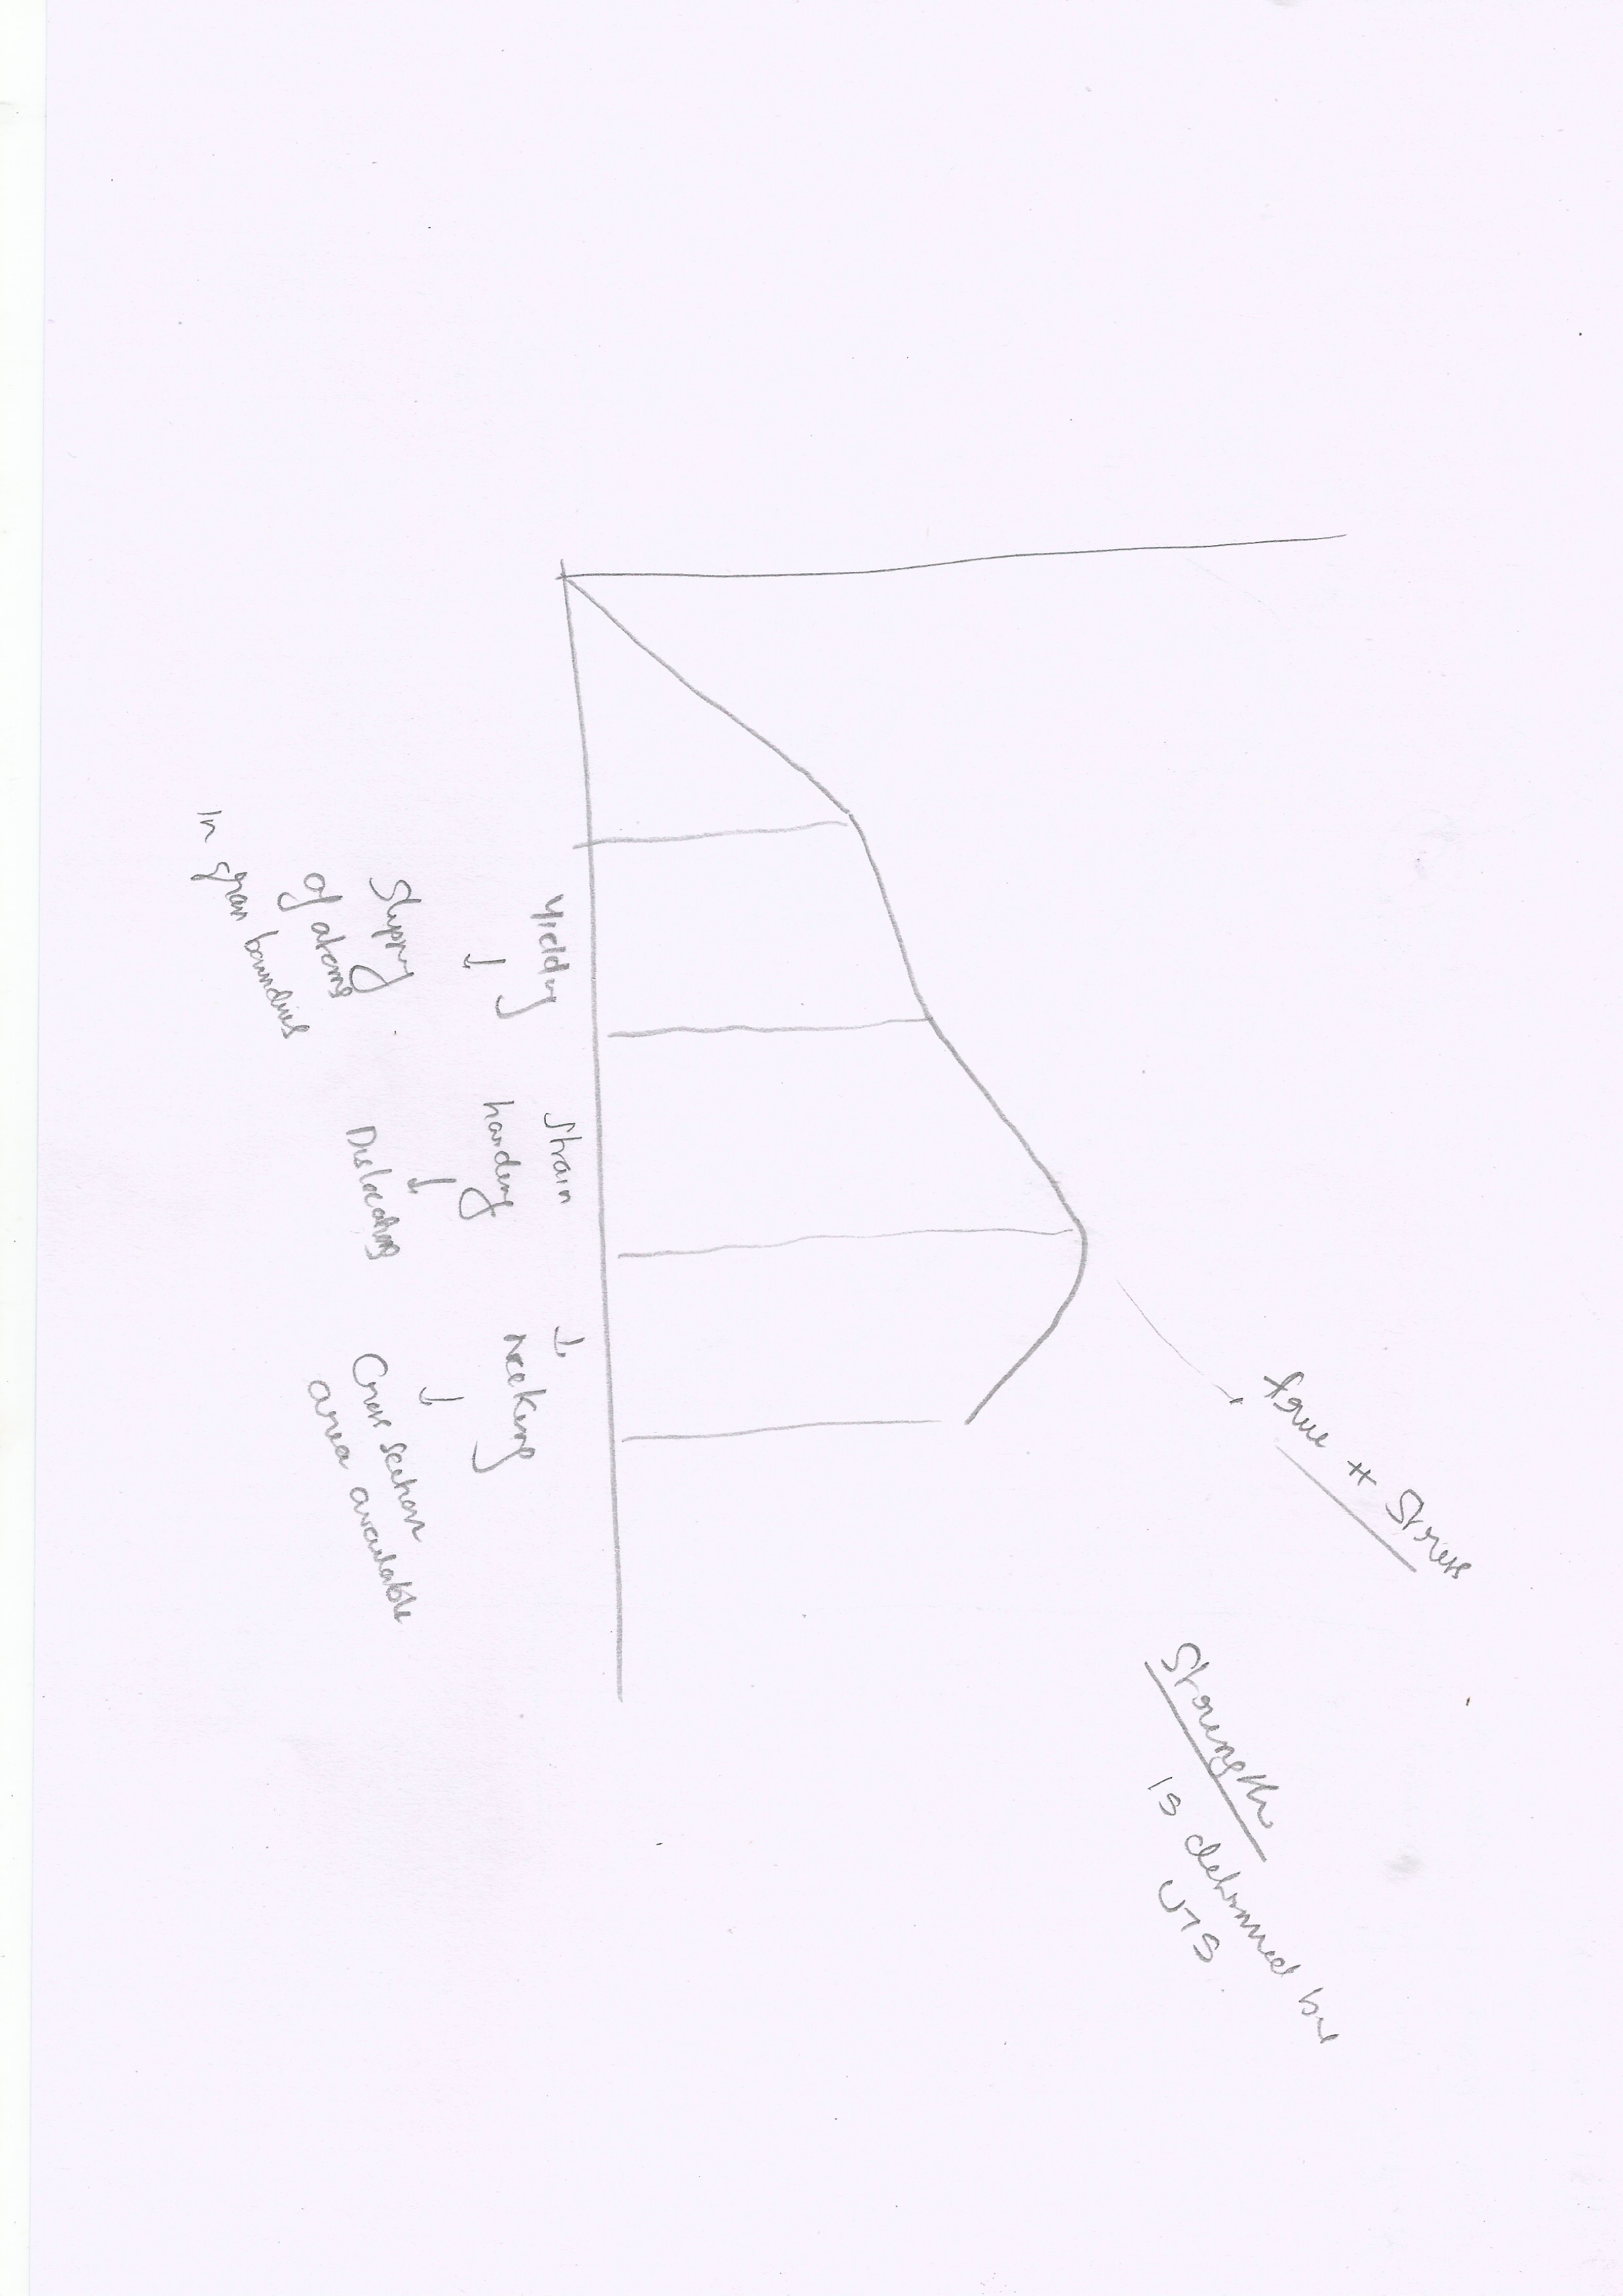 true Stress
Strength
is determined by
UTS
Yielding
↓
Slipping
of atoms
in grain boundries
Strain
harding
↓
Dislocations
↓
Necking
↓
Cross section
area available